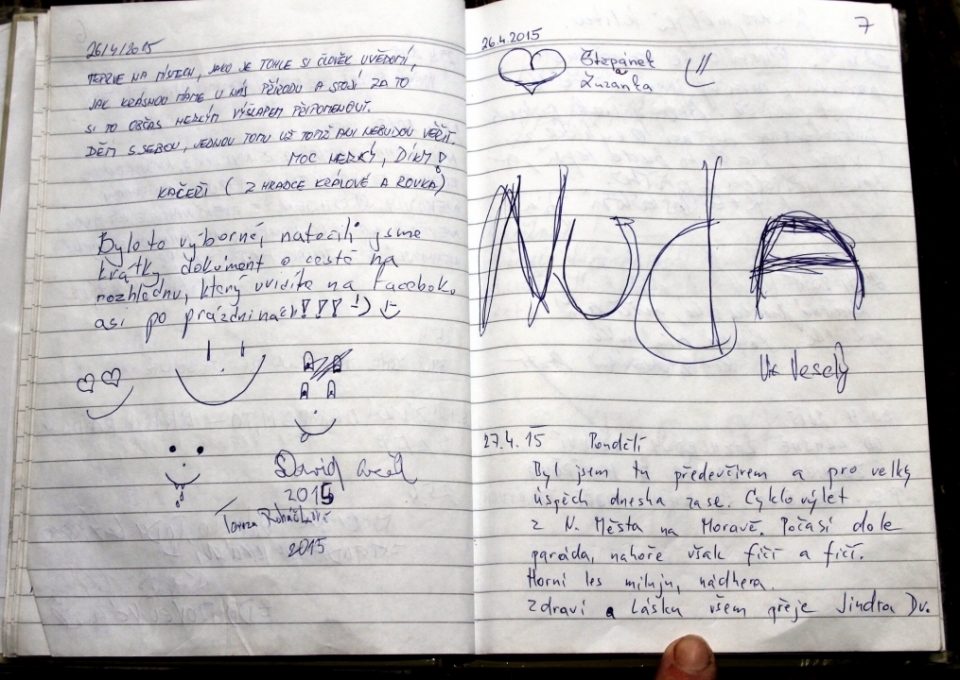 26/4/2015
TEPRVE NA MÍSTECH, JAKO JE TOHLE SI ČLOVĚK UVĚDOMÍ,
JAK KRÁSNOU MÁME U NÁS PŘÍRODU A STOJÍ ZA TO
SI TO OBČAS HEZKÝM VÝŠLAPEM PŘIPOMENOUT.
DĚTI S SEBOU, JEDNOU TOMU UŽ TOTIŽ ANI NEBUDOU VĚŘIT.
MOC HEZKÝ, DÍKY!
KAČEŘI (Z HRADCE KRÁLOVÉ A ROVKA)
Bylo to výborné, natočili jsme
krátký dokument o cestě na
rozhlednu, který uvidíte na Facebok,
asi po prázdninách!!!! :-)
David
2015
Tereza
2015
7
26.4.2015
Štěpánek
a
Zuzanka
NudA
Vít Veselý
27.4.15 Pondělí
Byl jsem tu předevčírem a pro velký
úspěch dneska zase. Cyklovýlet
z N. Města na Moravě. Počasí dole
paráda, nahoře však fičí a fičí.
Horní les miluju, nádhera.
Zdraví a lásku všem přeje Jindra Dv.